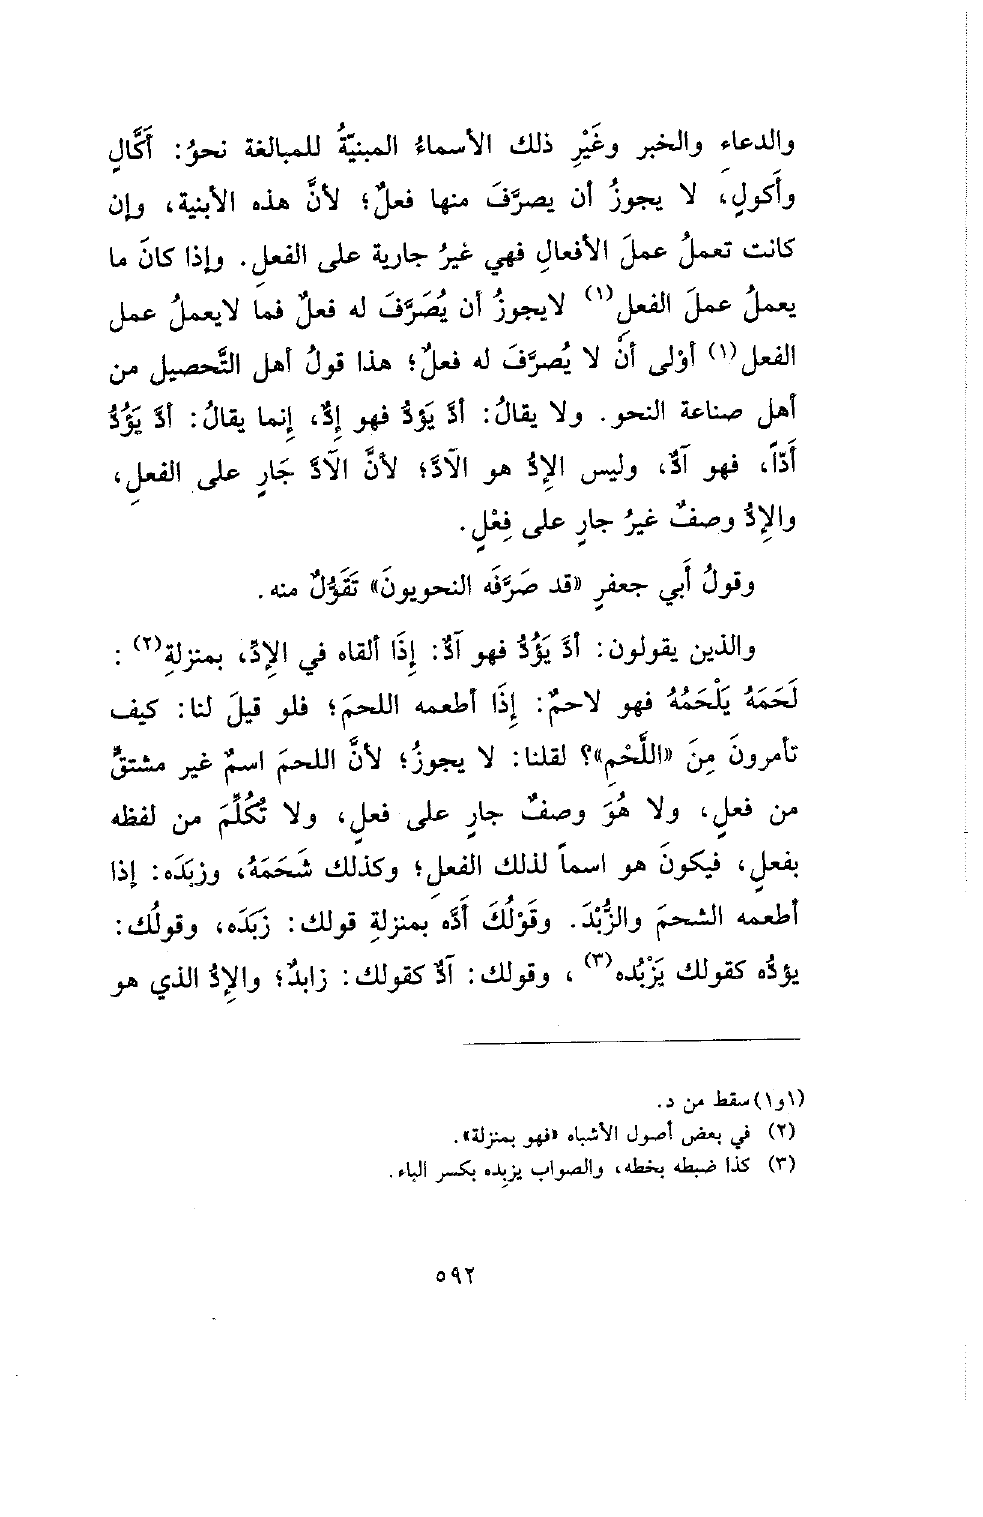 والدعاء والخبر وغَيْرِ ذلك الأسماءُ المبنيّةُ للمبالغة نحوُ: أَكَّالٍ
وأَكولٍ، لا يجوزُ أن يصرَّفَ منها فعلٌ؛ لأنَّ هذه الأبنية، وإن
كانت تعملُ عملَ الأفعالِ فهي غيرُ جارية على الفعلِ. وإذا كانَ ما
يعملُ عملَ الفعلِ(١) لايجوزُ أن يُصَرَّفَ له فعلٌ فما لايعملُ عمل
الفعل(١) أوْلى أنْ لا يُصرَّفَ له فعلٌ؛ هذا قولُ أهل التَّحصيل من
أهل صناعة النحو. ولا يقالُ: أدَّ يَؤدُّ فهو إدٌّ، إنما يقالُ: أدَّ يَؤُدُّ
أَدّاً، فهو آدٌّ، وليس الإدُّ هو الآدَّ؛ لأنَّ الآدَّ جَارٍ على الفعلِ،
والإدُّ وصفٌ غيرُ جارٍ على فِعْلٍ.
وقولُ أَبي جعفرٍ «قد صَرَّفَه النحويونَ» تَقَوُّلٌ منه.
والذين يقولون: أدَّ يَؤُدُّ فهو آدٌّ: إذَا ألقاه في الإدِّ، بمنزلةِ(٢):
لَحَمَهُ يَلْحَمُهُ فهو لاحمٌ: إذَا أطعمه اللحمَ؛ فلو قيلَ لنا: كيف
تأمرونَ مِنَ «اللَّحْمِ»؟ لقلنا: لا يجوزُ؛ لأنَّ اللحمَ اسمٌ غير مشتقٍّ
من فعلٍ، ولا هُوَ وصفٌ جارٍ على فعلٍ، ولا تُكُلِّمَ من لفظه
بفعلٍ، فيكونَ هو اسماً لذلك الفعلِ؛ وكذلك شَحَمَهُ، وزبَدَه: إذا
أطعمه الشحمَ والزُّبْدَ. وقَوْلُكَ أَدَّه بمنزلةِ قولك: زَبَدَه، وقولُك:
يؤدُّه كقولك يَزْبُده(٣)، وقولك: آدٌّ كقولك: زابدٌ؛ والإدُّ الذي هو
(١و١)سقط من د.
(٢) في بعض أصول الأشباه «فهو بمنزلة».
(٣) كذا ضبطه بخطه، والصواب يزبِده بكسر الباء.
٥٩٢